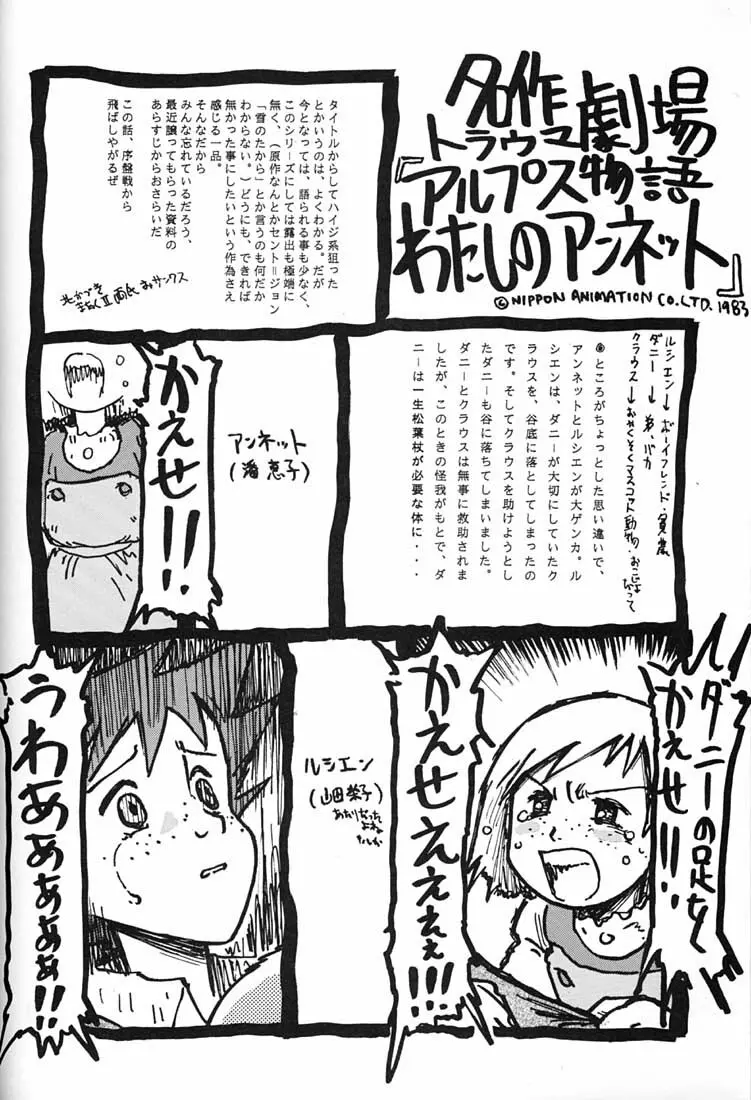 名作
トラウマ劇場
『アルプス物語
わたしのアンネット』
©NIPPON ANIMATION CO.LTD.1983
タイトルからしてハイジ系狙った
とかいうのは、よくわかる。だが
今となっては、語られる事も少なく、
このシリーズにしては露出も極端に
無く、(原作なんとかセント=ジョン
「雪のたから」とか言うのも何だか
わからない。)どうにも、できれば
無かった事にしたいという作為さえ
感じる一品。
そんなだから
みんな忘れているだろう、
最近譲ってもらった資料の
あらすじからおさらいだ
この話、序盤戦から
飛ばしやがるぜ
ルシエン→ボーイフレンド・貧農
ダニー→弟、バカ
クラウス→おやくそくマスコット動物・おこじょ
だって
●ところがちょっとした思い違いで、
アンネットとルシエンが大ゲンカ。ル
シエンは、ダニーが大切にしていたク
ラウスを、谷底に落としてしまったの
です。そしてクラウスを助けようとし
たダニーも谷に落ちてしまいました。
ダニーとクラウスは無事に救助されま
したが、このときの怪我がもとで、ダ
ニーは一生松葉杖が必要な体に・・・
アンネット
(潘恵子)
かえせ!!
ダニーの足を
かえせ!!
かえせえええぇ!!!
ルシエン
(山田栄子)
うわあぁぁぁぁ!!